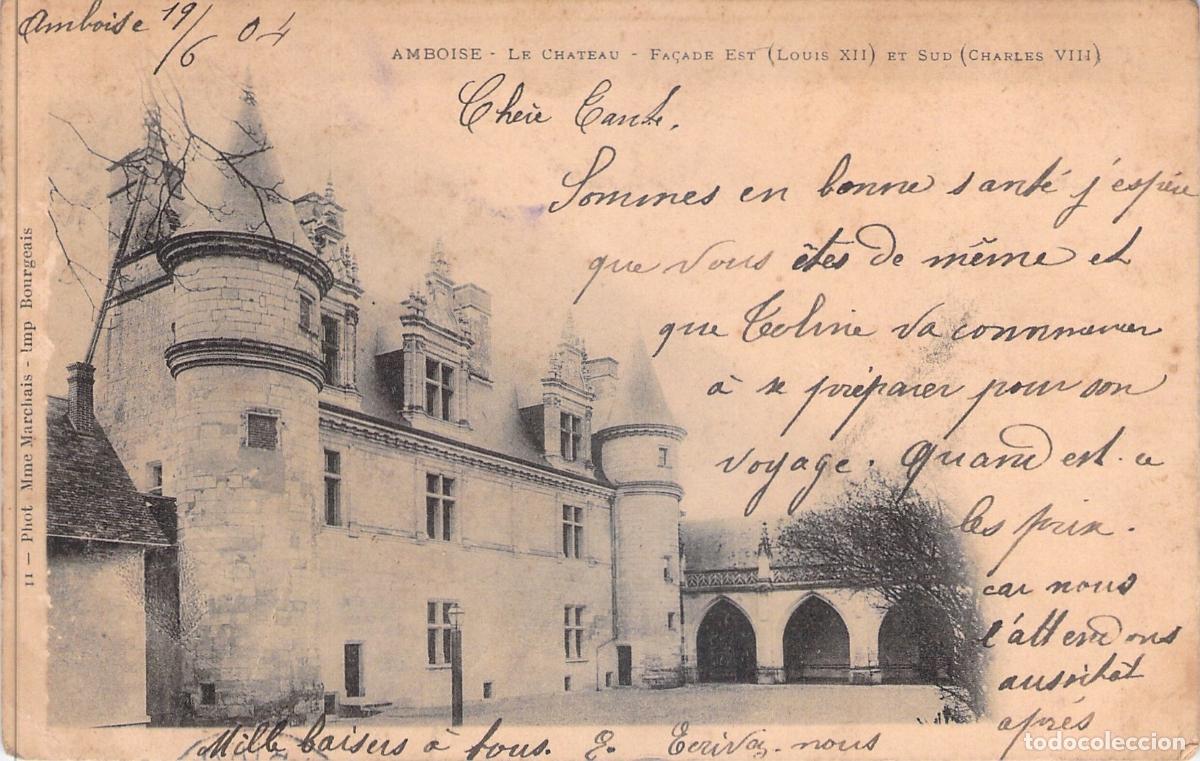 Amboise 19/6 04
AMBOISE - LE CHATEAU - FAÇADE EST (LOUIS XII) ET SUD (CHARLES VIII)
Chère Tante,
Sommes en bonne santé j'espère
que vous êtes de même et
que va commencer
à se préparer pour son
voyage. Quand est-ce
les prix.
car nous
l'attendons
aussitôt
après
Mille baisers à tous. E. Ecrivez-nous
11 — Phot Mme Marchais - Imp Bourgeais
todocoleccion